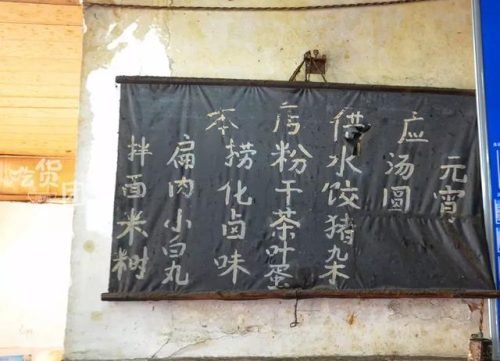 本店供应
拌面米树
扁肉小白丸
捞化卤味
粉干茶叶蛋
水饺猪杂
汤圆
元宵
吃货